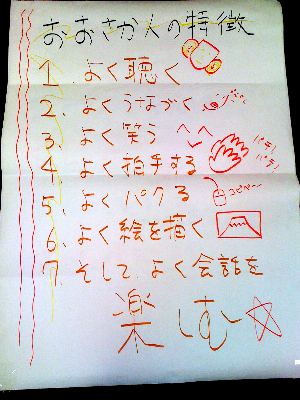 おおさか人の特徴
1. よく聴く
2. よくうなづく
3. よく笑う
4. よく拍手する パチ! パチ!
5. よくパクる コピペ〜
6. よく絵を描く
7. そして、よく会話を
楽しむ